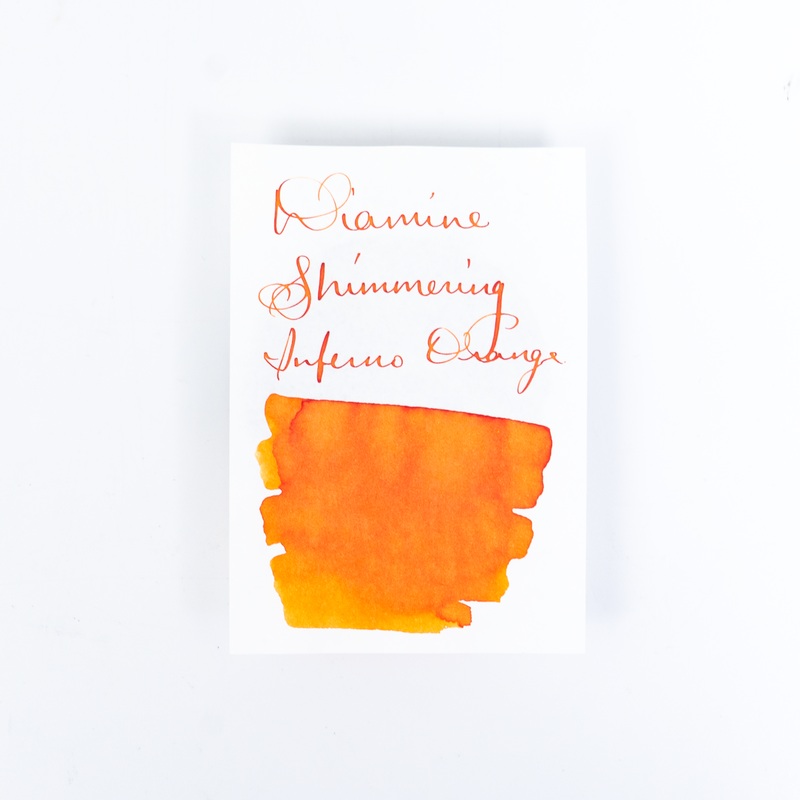 Diamine
Shimmering
Inferno Orange